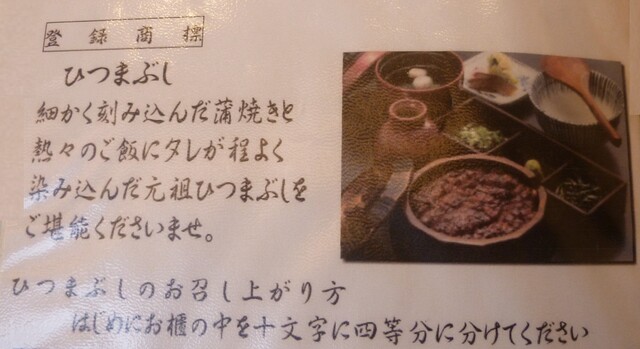 登録商標
ひつまぶし
細かく刻み込んだ蒲焼きと
熱々のご飯にタレが程よく
染み込んだ元祖ひつまぶしを
ご堪能くださいませ。
ひつまぶしのお召し上がり方
はじめにお櫃の中を十文字に四等分に分けてください